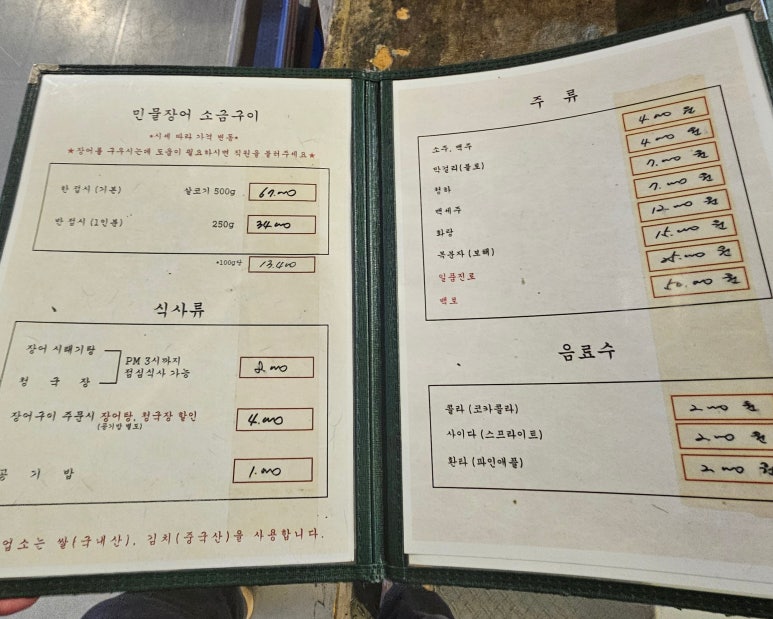 민물장어 소금구이
*시세 따라 가격 변동*
★장어를 구우시는데 도움이 필요하시면 직원을 불러주세요★
한 접시 (기본) 살코기 500g 67.000
반 접시 (1인분) 250g 34.000
*100g당 13.400
식사류
장어 시래기탕
청 국 장
PM 3시까지
점심식사 가능
장어구이 주문시 장어탕, 청국장 할인 4.000
(공기밥 별도)
공 기 밥 1.000
업소는 쌀(국내산), 김치(중국산)을 사용합니다.
주 류
소주, 맥주 4.000 원
막걸리(불로) 4.000 원
청하 7.000 원
백세주 7.000 원
화랑 12.000 원
복분자 (보해) 15.000 원
일품진로 25.000 원
백보 50.000 원
음료수
콜라 (코카콜라) 2.000 원
사이다 (스프라이트) 2.000 원
환타 (파인애플) 2.000 원